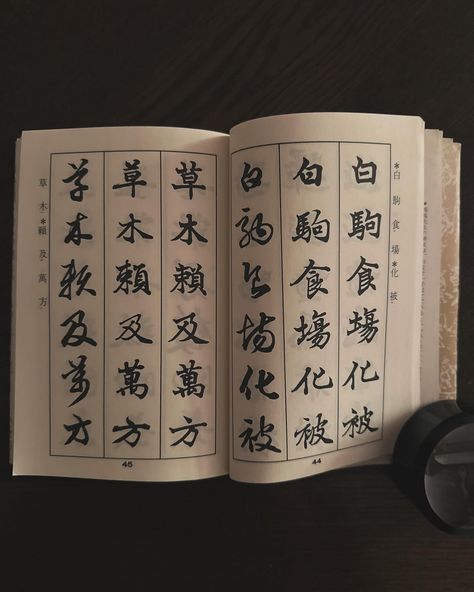 *白駒食場*化被
白駒食場化被
白駒食場化被
白駒食場化被
44
草木*賴及萬方
草木賴及萬方
草木賴及萬方
草木賴及萬方
45